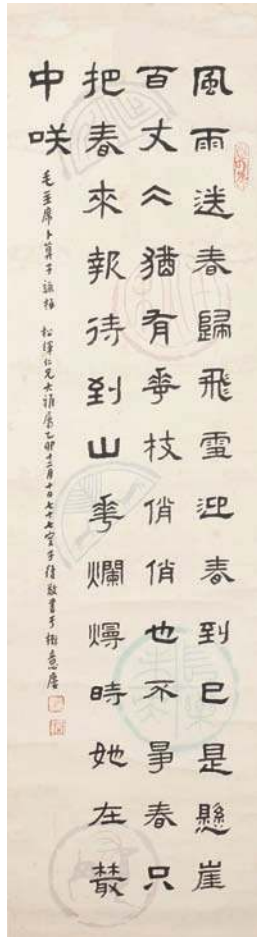 風雨送春歸飛雪迎春到已是懸崖
百丈仌猶有華枝俏俏也不爭春只
把春來報待到山華爛熳時她在叢
中咲
毛主席卜算子詠梅 仁兄大雅屬乙卯十二月十日七十七叟敬書于